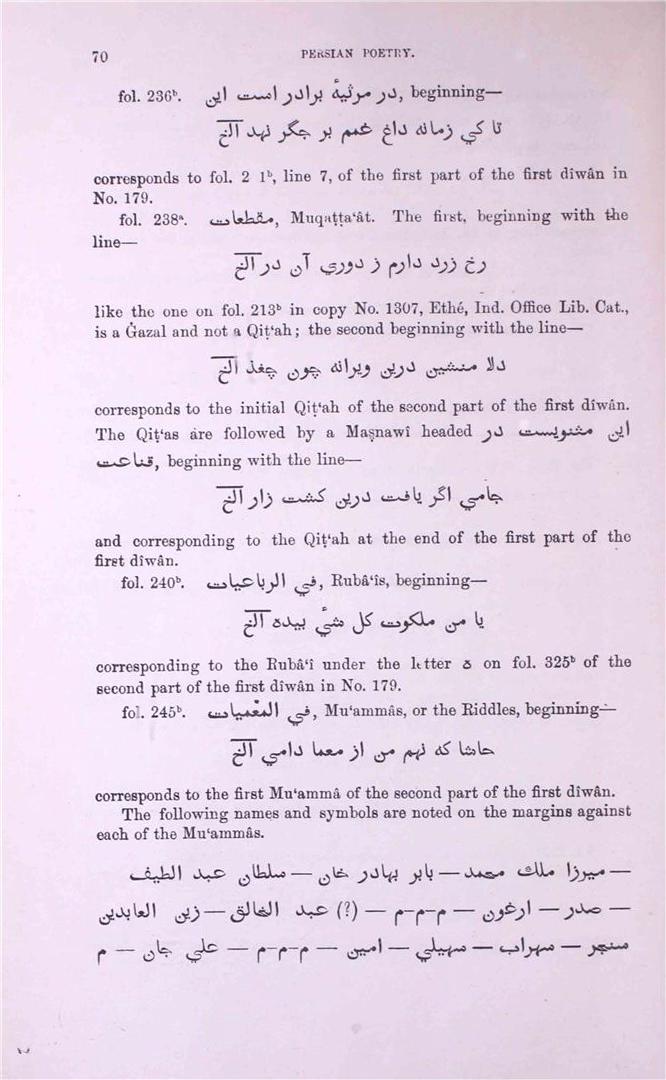 70
PERSIAN POETRY.
fol. 236ᵇ. در مرثیهٔ برادر است این, beginning—
تا كي زمانه داغ غمم بر جگر نهد الخ
corresponds to fol. 2 1ᵇ, line 7, of the first part of the first dîwân in
No. 179.
fol. 238ᵃ. مقطعات, Muqaṭṭa‘ât. The first, beginning with the
line—
رخ زرد دارم ز دوري آن در الخ
like the one on fol. 213ᵇ in copy No. 1307, Ethé, Ind. Office Lib. Cat.,
is a Ġazal and not a Qiṭ‘ah; the second beginning with the line—
دلا منشین درین ویرانه چون چغذ الخ
corresponds to the initial Qiṭ‘ah of the second part of the first dîwân.
The Qiṭ‘as are followed by a Maṣnawî headed این مثنویست در
قناعت, beginning with the line—
جامي اگر یافت درین کشت زار الخ
and corresponding to the Qiṭ‘ah at the end of the first part of the
first dîwân.
fol. 240ᵇ. في الرباعیات, Rubâ‘îs, beginning—
یا من ملکوت کل شئ بیده الخ
corresponding to the Rubâ‘î under the letter ة on fol. 325ᵇ of the
second part of the first dîwân in No. 179.
fol. 245ᵇ. في المعٌمیات, Mu‘ammâs, or the Riddles, beginning—
حاشا که نهم من از معما دامي الخ
corresponds to the first Mu‘ammâ of the second part of the first dîwân.
The following names and symbols are noted on the margins against
each of the Mu‘ammâs.
— میرزا ملك محمد — بابر بهادر خان — سلطان عبد الطیف
— صدر — ارغون — م-م-م — (?) عبد الخالق — زین العابدین
سنجر — سهراب — سهیلي — امین — م-م-م — علي جان — م